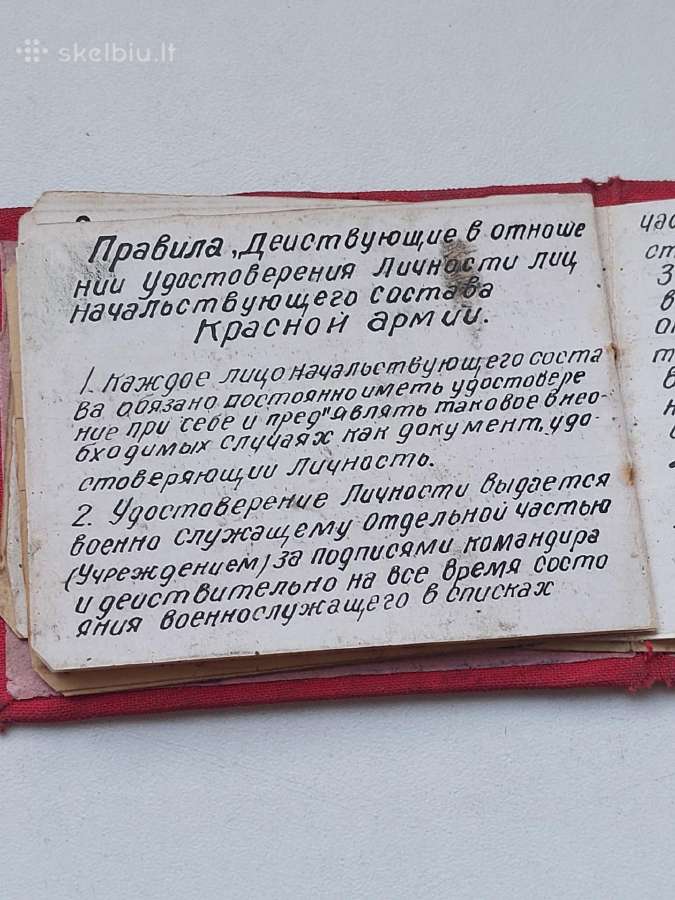 skelbiu.lt
Правила, Действующие в отноше
нии удостоверения Личности лиц
начальствующего состава
Красной армии.
1. Каждое лицо начальствующего соста
ва обязано постоянно иметь удостовере
ние при себе и пред"являть таковое в нео-
бходимых случаях как документ, удо-
стоверяющий личность.
2. Удостоверение Личности выдается
военно служащему отдельной частью
(учреждением) за подписями командира
и действительно на все время состо
яния военнослужащего в списках
час
ст
З
в